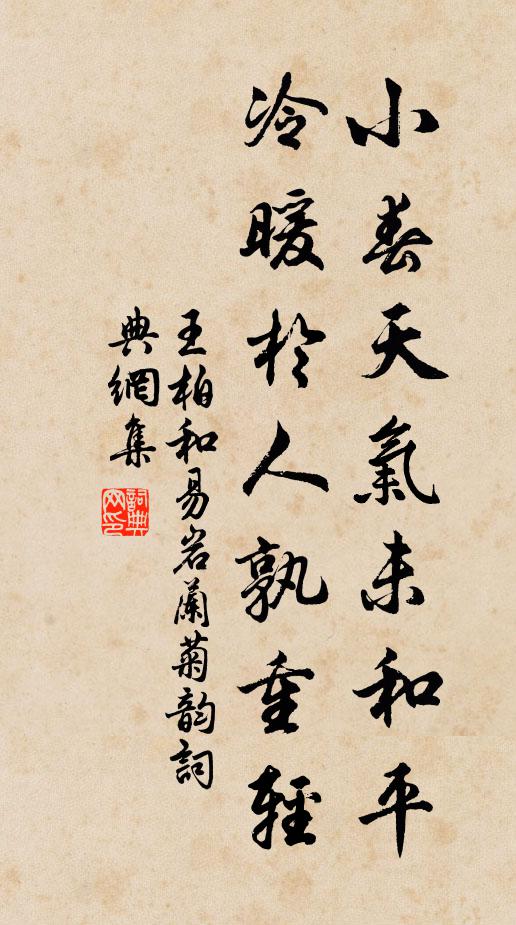 小春天氣未和平
冷暖於人孰重輕
王柏和易岩蘭菊韵詞
典網集
詞典
网印